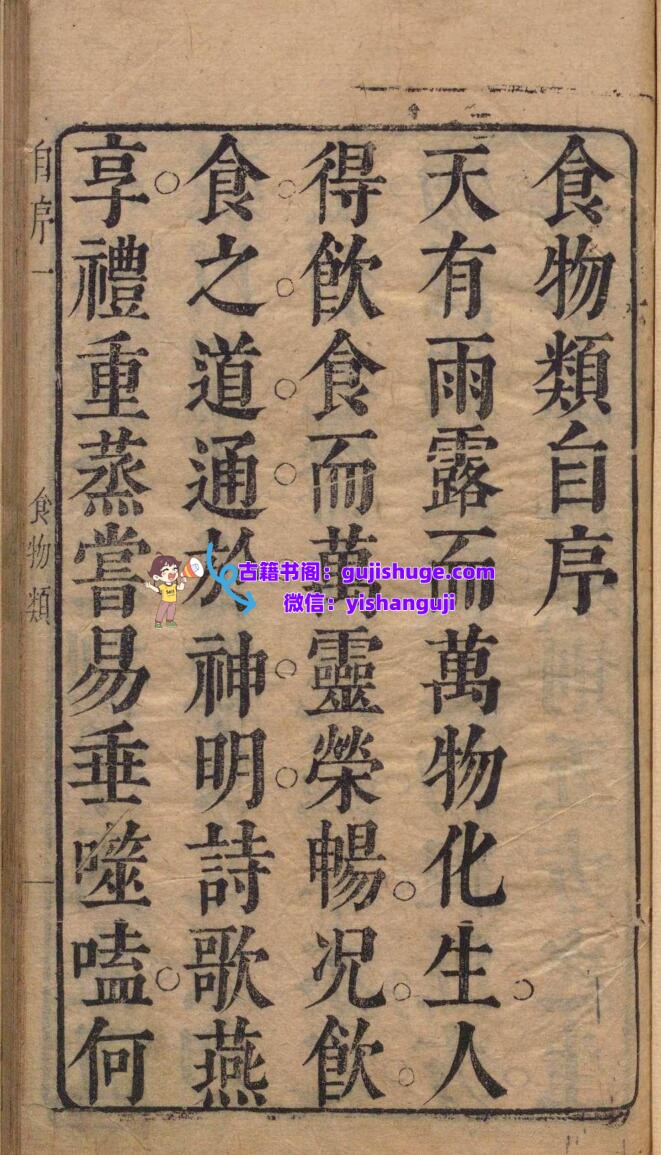 食物類自序
天有雨露而萬物化生人
得飲食而萬靈榮暢况飲
食之道通於神明詩歌燕
享禮重蒸嘗易垂噬嗑何
自序一
食物類
古籍书阁：gujishuge.com
微信：yishanguji